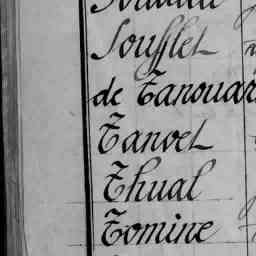 Soufflet
de Tanouar
Tanvet
Thual
Tomine